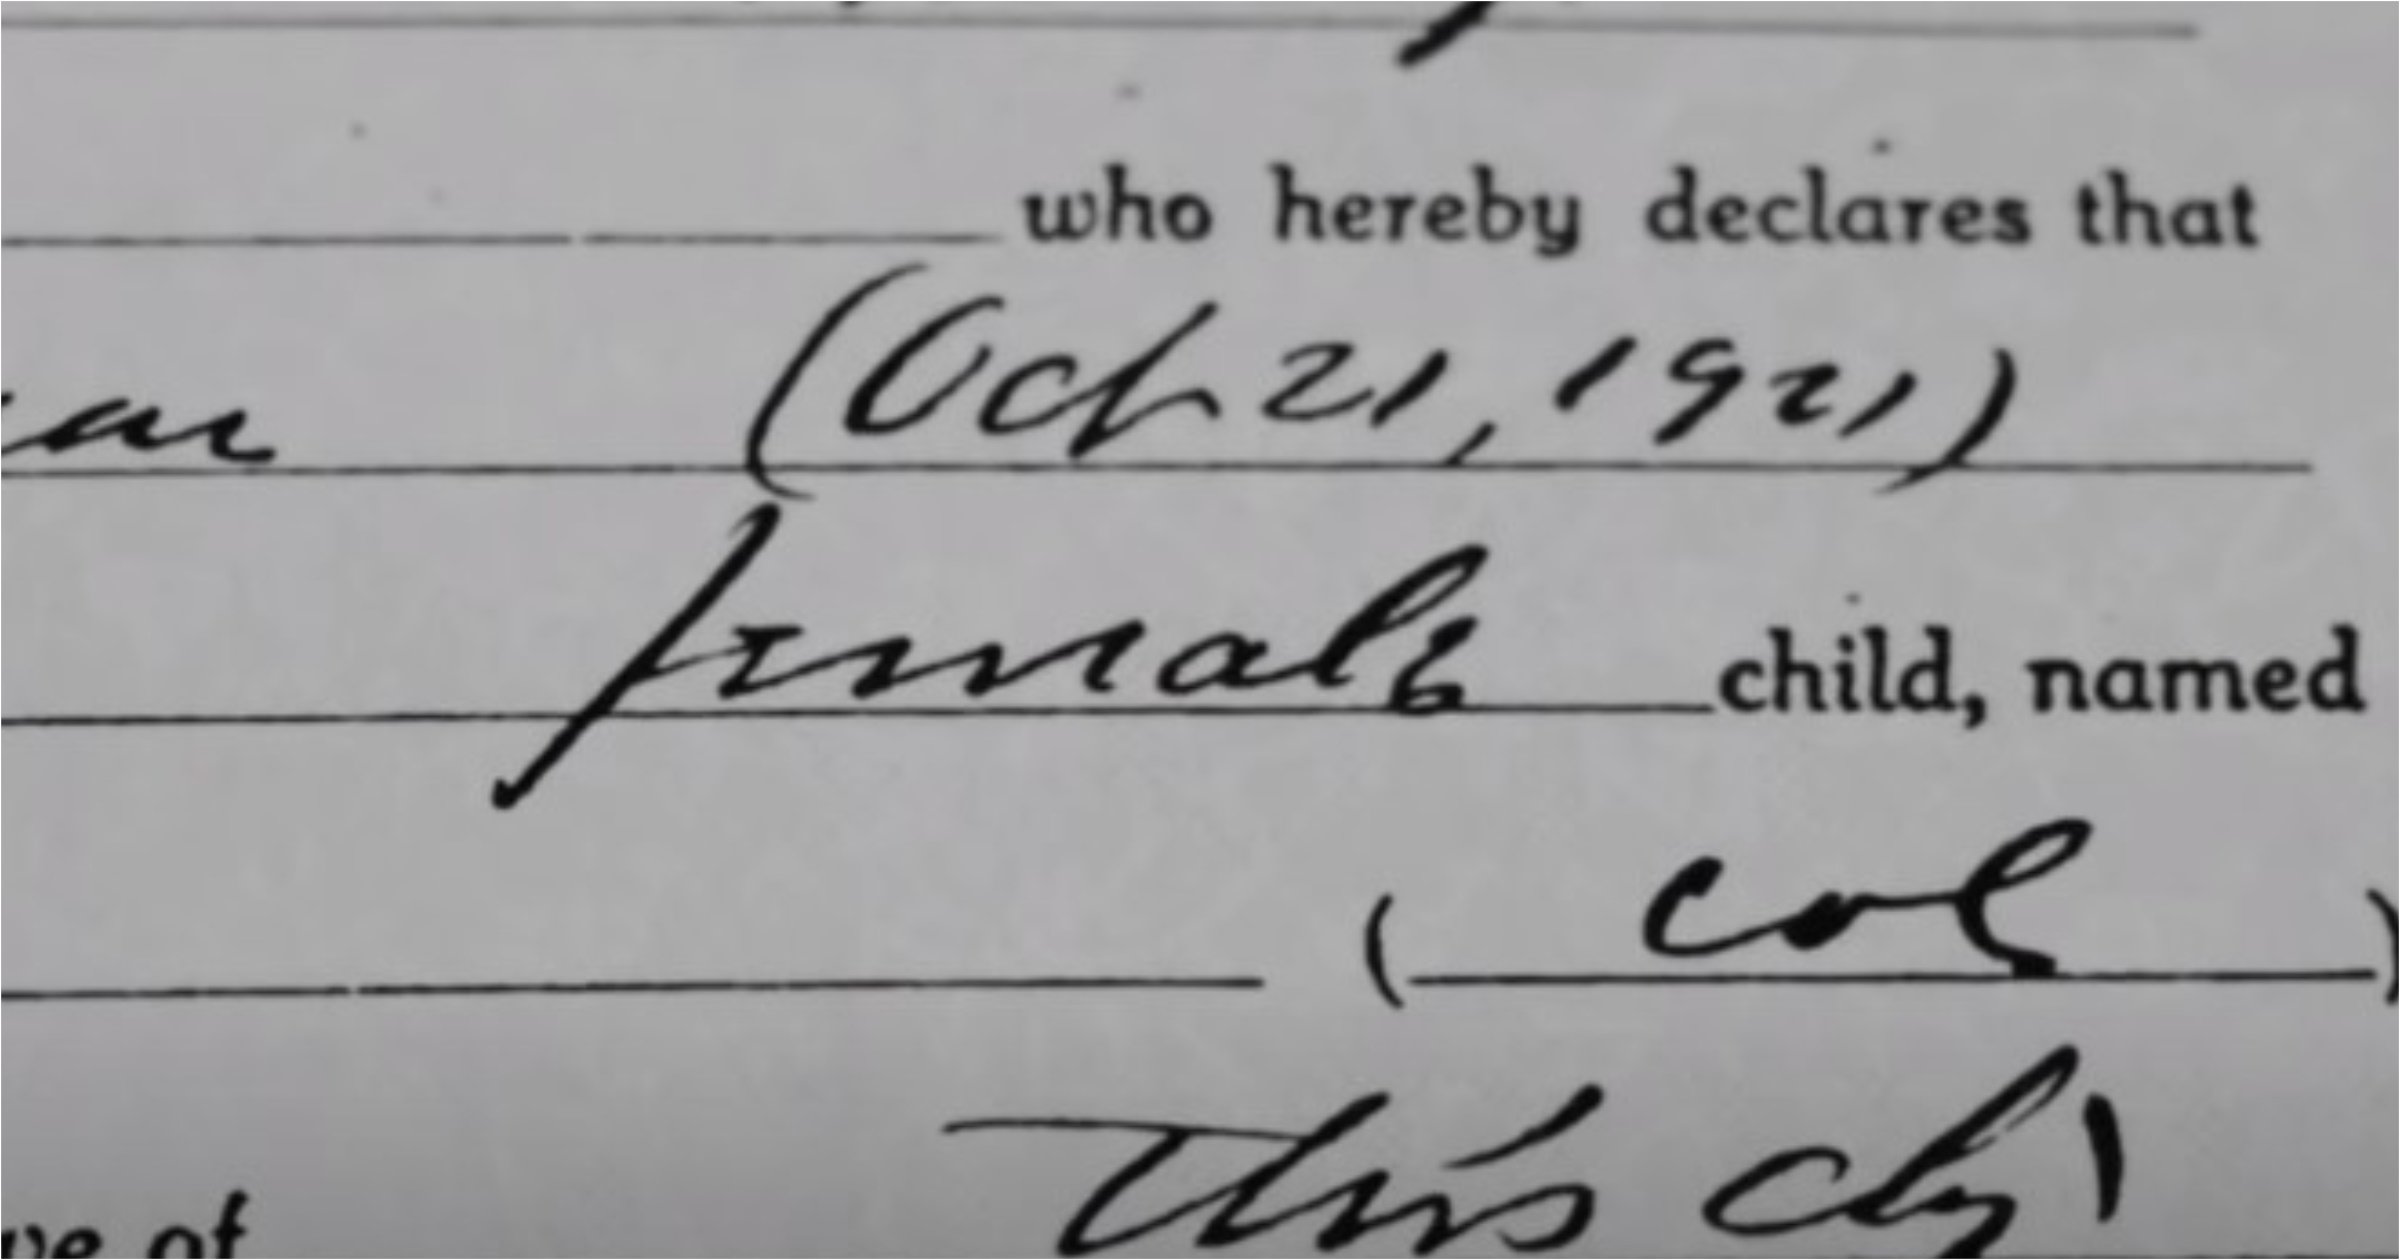 who hereby declares that
(Oct 21, 1921)
female child, named
( col )
This